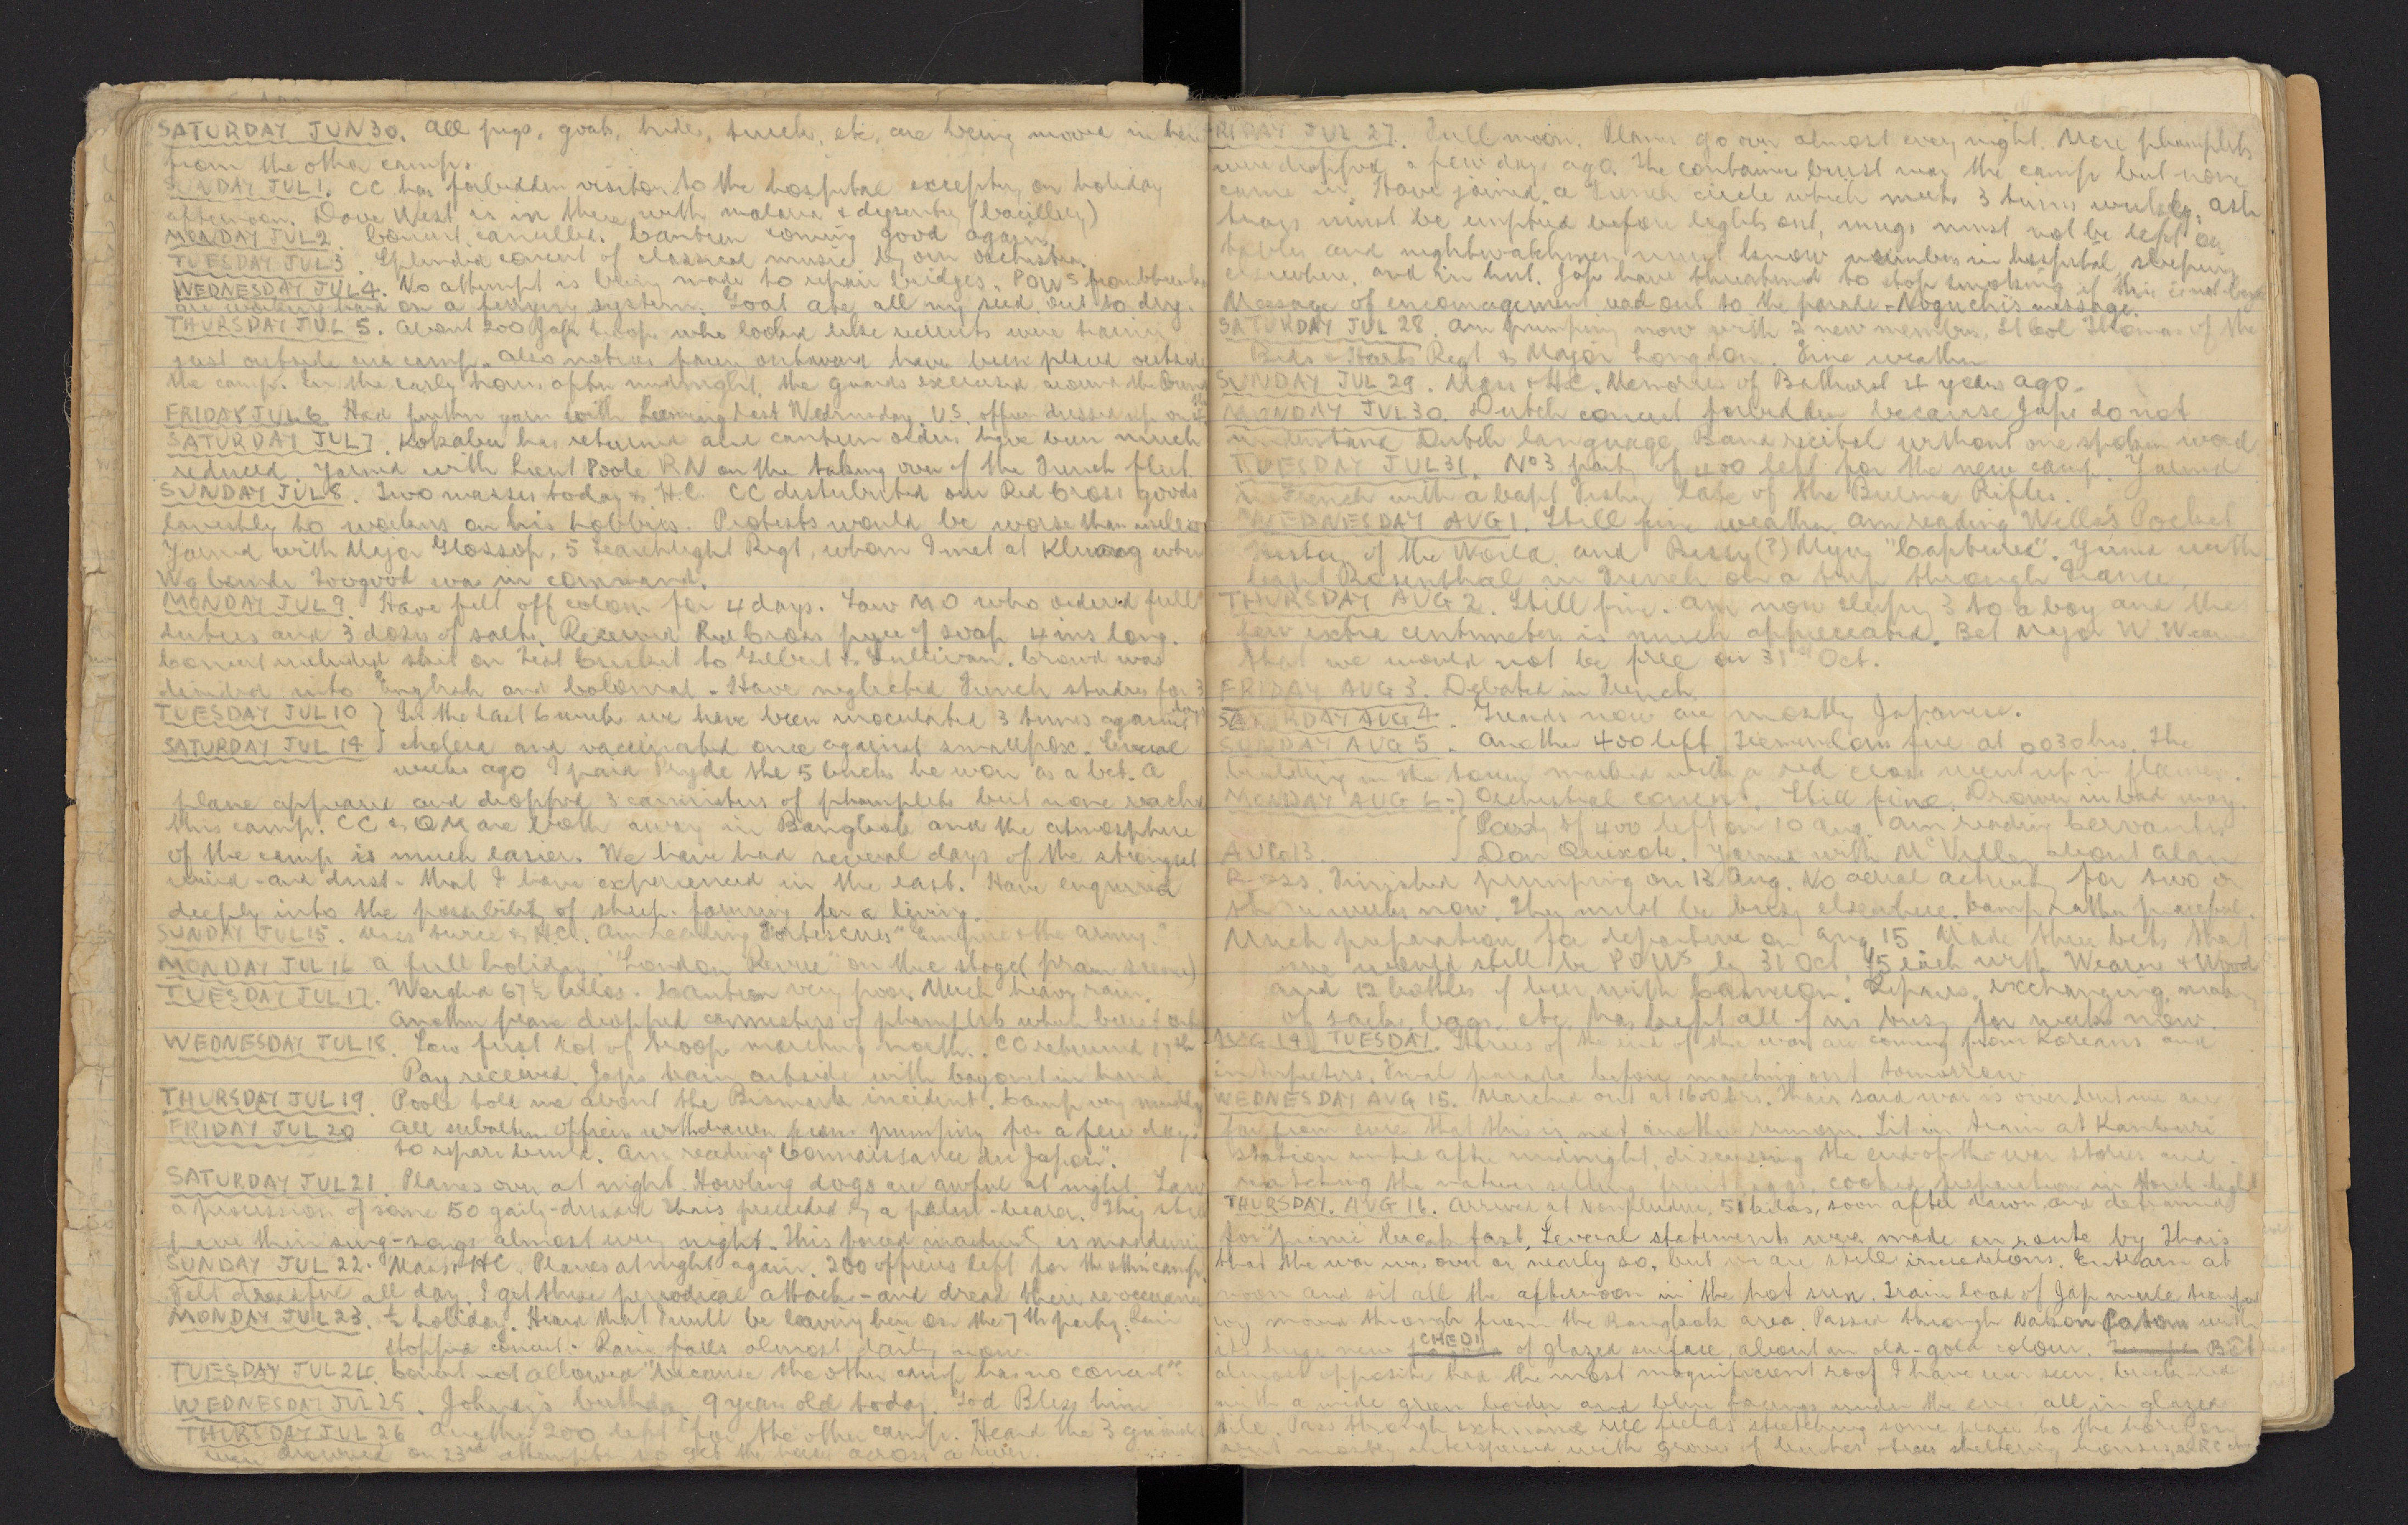 SATURDAY JUN 30. All pigs, goats, hides, trucks, etc, are being moved in here
from the other camp.
SUNDAY JUL 1. CC has forbidden visitors to the hospital excepting on holiday
afternoon. Dave West is in there with malaria & dysentry (bacillery)
MONDAY JUL 2. Concert cancelled. Canteen coming good again.
TUESDAY JUL 3. Splendid concert of classical music by our orchestra.
WEDNESDAY JUL 4. No attempt is being made to repair bridges. POWS from
are working hard on a ferrying system. Goat ate all my seed out to dry.
THURSDAY JUL 5. About 200 Jap troops who looked like recruits were training
just outside our camp. Also notices facing outward have been placed outside
the camp. In the early hours after midnight, the guards exercised around the
FRIDAY JUL 6 Had further yarn with last Wednesday. U.S. officer dressed up
SATURDAY JUL 7. Kokabu has returned and canteen orders have been much
reduced. Yarned with Lieut Poole RN on the taking over of the French fleet.
SUNDAY JUL 8. Two masses today & H.C. CC distributed our Red Cross goods
lavishly to workers on his hobbies. Protests would be worse than useless
Yarned with Major Glossop, 5 Searchlight Regt, whom I met at Kluang when
Wg Comdr Toogood was in command.
MONDAY JUL 9. Have felt off colour for 4 days. Saw MO who ordered full
duties and 3 doses of salts. Received Red Cross piece of soap 4 ins long.
Concert included skit on Test Cricket to Gilbert & Sullivan. Crowd was
divided into English and Colonial. Have neglected French studies for 3
TUESDAY JUL 10 } In the last 6 weeks we have been inoculated 3 times against
SATURDAY JUL 14 } cholera and vaccinated once against smallpox. Several
weeks ago I paid Pryde the 5 bucks he won as a bet. A
plane appeared and dropped 3 cannisters of phamplets but none reached
this camp. CC & QM are both away in Bangkok and the atmosphere
of the camp is much easier. We have had several days of the strongest
wind - and dust - that I have experienced in the east. Have enquired
deeply into the possibility of sheep-farming for a living.
SUNDAY JUL 15. Mass twice & H.C. Am reading Fortescue's "Empire & the Army."
MONDAY JUL 16 A full holiday. "London Revue" on the stage (pram scene)
TUESDAY JUL 17. Weighed 67½ kilos. Canteen very poor. Much heavy rain.
Another plane dropped cannisters of phamplets which burst
WEDNESDAY JUL 18. Saw first lot of troops marching north. CO returned 17th
Pay received. Japs train outside with bayonet in hand.
THURSDAY JUL 19. Poole told me about the Bismark incident. Camp very muddy
FRIDAY JUL 20 All subaltern officers withdrawn from pumping for a few days
to repair bund. Am reading "Connaissance du Japon".
SATURDAY JUL 21. Planes over at night. Howling dogs are awful at night. Saw
a procession of some 50 gaily-dressed Thais preceded by a palm-bearer. They still
have their sing-songs almost every night. This forced inactivity is maddening
SUNDAY JUL 22. Mass & HC. Planes at night again. 200 officers left for the other camp.
Felt dreadful all day. I get these periodical attacks - and dread their reoccurance
MONDAY JUL 23. ½ holiday. Heard that I will be leaving here on the 7th party. Rain
stopped concert. Rain falls almost daily now.
TUESDAY JUL 24. Concert not allowed "because the other camp has no concert".
WEDNESDAY JUL 25. Johnny's birthday. 9 years old today. God Bless him
THURSDAY JUL 26 Another 200 left for the other camp. Heard the 3
were drowned on 23rd attempting to get the across a river.
FRIDAY JUL 27. Full moon. Planes go over almost every night. More phamplets
were dropped a few days ago. The container burst near the camp but none
came in. Have joined a French circle which meets 3 times weekly. Ash
trays must be emptied before lights out, mugs must not be left on
tables and nightwatchmen must know numbers in hospital, sleeping
elsewhere, and in hut. Japs have threatened to stop smoking if this is not
Message of encouragement read out to the parade - Noguchi's message.
SATURDAY JUL 28. Am pumping now with 2 new members, Lt Col Thomas of the
Beds & Herts Regt & Major Longdon. Fine weather
SUNDAY JUL 29. Mass & H.C. Memories of Bathurst 4 years ago.
MONDAY JUL 30. Dutch concert forbidden because Japs do not
understand Dutch language. Band recital without one spoken word
TUESDAY JUL 31. No 3 party of 400 left for the new camp. Yarned
in French with a Capt Fisher late of the Burma Rifles.
WEDNESDAY AUG 1. Still fine weather. Am reading Wells's Pocket
History of the World, and (?) "Captures". Yarned with
Capt Rosenthal in French on a trip through France.
THURSDAY AUG 2. Still fine. Am now sleeping 3 to a bay and the
few extra centimeters is much appreciated. Bet Major W. Wearne
that we would not be free on 31st Oct.
FRIDAY AUG 3. Debated in French.
SATURDAY AUG 4. Guards now are mostly Japanese.
SUNDAY AUG 5. Another 400 left. Tremendous fire at 0030 hrs. The
building in the town marked with a red cross went up in flames.
MONDAY AUG 6 -} Orchestral concert. Still fine. Drower in bad way.
{ Party of 400 left on 10 Aug. Am reading Cervantes
AUG 13. Don Quixote. Yarned with about Alan
Ross. Finished pumping on 13 Aug. No aerial activity for two or
three weeks now. They must be busy elsewhere. Camp rather peaceful.
Much preparation for departure on Aug 15. Made three bets that
we would still be POWS by 31 Oct, £5 each with Wearne & Wood
and 12 bottles of beer with Cameron. Repairs, exchanging, making
of sacks, bags, etc, has kept all of us busy for weeks now
AUG 14 TUESDAY. Stories of the end of the war are coming from Koreans and
interpreters. Final parade before marching out tomorrow
WEDNESDAY AUG 15. Marched out at 1600 hrs. Thais said war is over, but we are
far from sure that this is not another rumour. Sit in train at Kanburi
station until after midnight, discussing the end-of-the-war stories and
watching the natives selling fruit, eggs, cooked preparations in torch-light
THURSDAY. AUG 16. Arrived at Nonpladuc, 51 kilos, soon after dawn, and detrained
for "picnic" breakfast. Several statements were made en route by Thais
that the war was over or nearly so, but we are still incredulous. Entrain at
noon and sit all the afternoon in the hot sun. Train load of Jap mule transport
moved through from the Bangkok area. Passed through Nakon Patom with
its huge new CHEDI of glazed surface, about an old-gold colour. BOT
almost opposite had the most magnificent roof I have ever seen, brick-red
with a wide green border and blue facings under the eaves all in glazed
tile. Pass through extensive rice fields stretching some place to the horizon
but mostly interspersed with groves of bushes & trees sheltering houses,